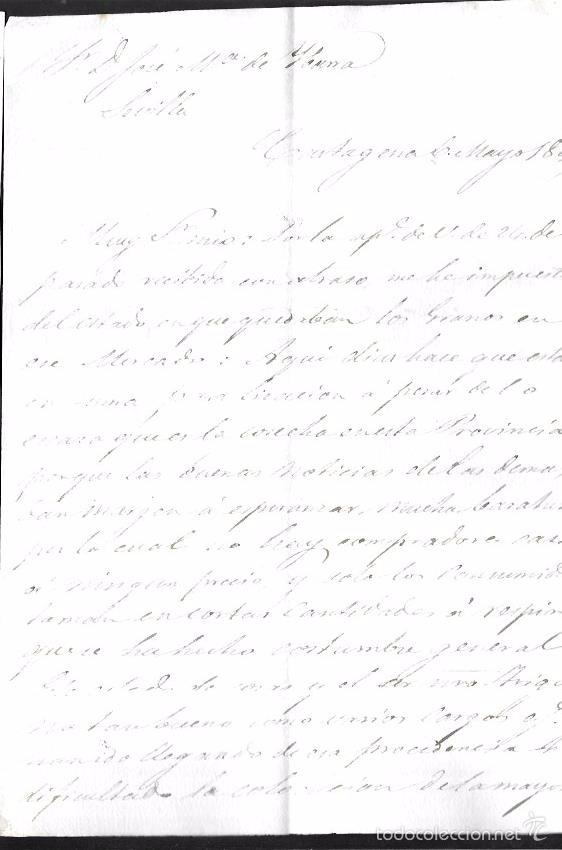 Sr. D. José Ma. de Ybarra
Sevilla
Cartagena 6 Mayo 18
Muy Sr. mio: Por la apda. de V. de 24 de
pasado recibida con atraso, me he impuesto
del estado en que quedaban los Granos en
ese Mercado: Aqui dias hace que estan
en una paralizacion á pesar de lo
escasa que es la cosecha en esta Provincia
porque las buenas noticias de las demas
dan margen á esperanzar mucha baratura
por lo cual no hay compradores casi
á ningun precio y solo los Consumido
toman en cortas Cantidades á
que se ha hecho costumbre general
Este estado de cosas y el ser Trigo
no tan bueno como varios Cargos qe.
han ido llegando de esa procedencia
dificultado la colocacion de la mayor
todocoleccion.net